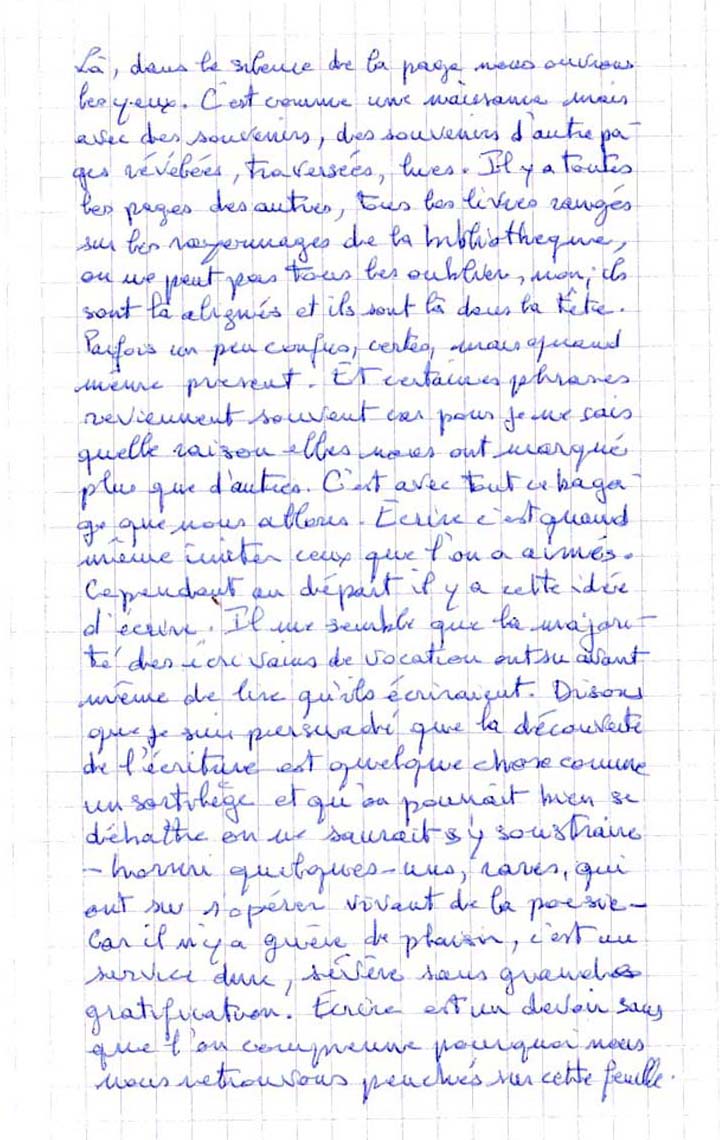 Là, dans le silence de la page nous ouvrons
les yeux. C'est comme une naissance mais
avec des souvenirs, des souvenirs d'autre pa-
ges révélées, traversées, lues. Il y a toutes
les pages des autres, tous les livres rangés
sur les rayonnages de la bibliothèque,
on ne peut pas tous les oublier, non, ils
sont là alignés et ils sont là dans la tête.
Parfois un peu confus, certes, mais quand
même présent. Et certaines phrases
reviennent souvent car pour je ne sais
quelle raison elles nous ont marqué
plus que d'autres. C'est avec tout ce baga-
ge que nous allons. Écrire c'est quand
même imiter ceux que l'on a aimés.
Cependant au départ il y a cette idée
d'écrire. Il me semble que la majori-
té des écrivains de vocation ont su avant
même de lire qu'ils écriraient. Disons
que je suis persuadé que la découverte
de l'écriture est quelque chose comme
un sortilège et qu'on pourrait bien se
débattre on ne saurait s'y soustraire
- hormi quelques-uns, rares, qui
ont su s'opérer vivant de la poésie -
Car il n'y a guère de plaisir, c'est un
service dur, sévère sans grandes
gratification. Écrire est un devoir sans
que l'on comprenne pourquoi nous
nous retrouvons penchés sur cette feuille.